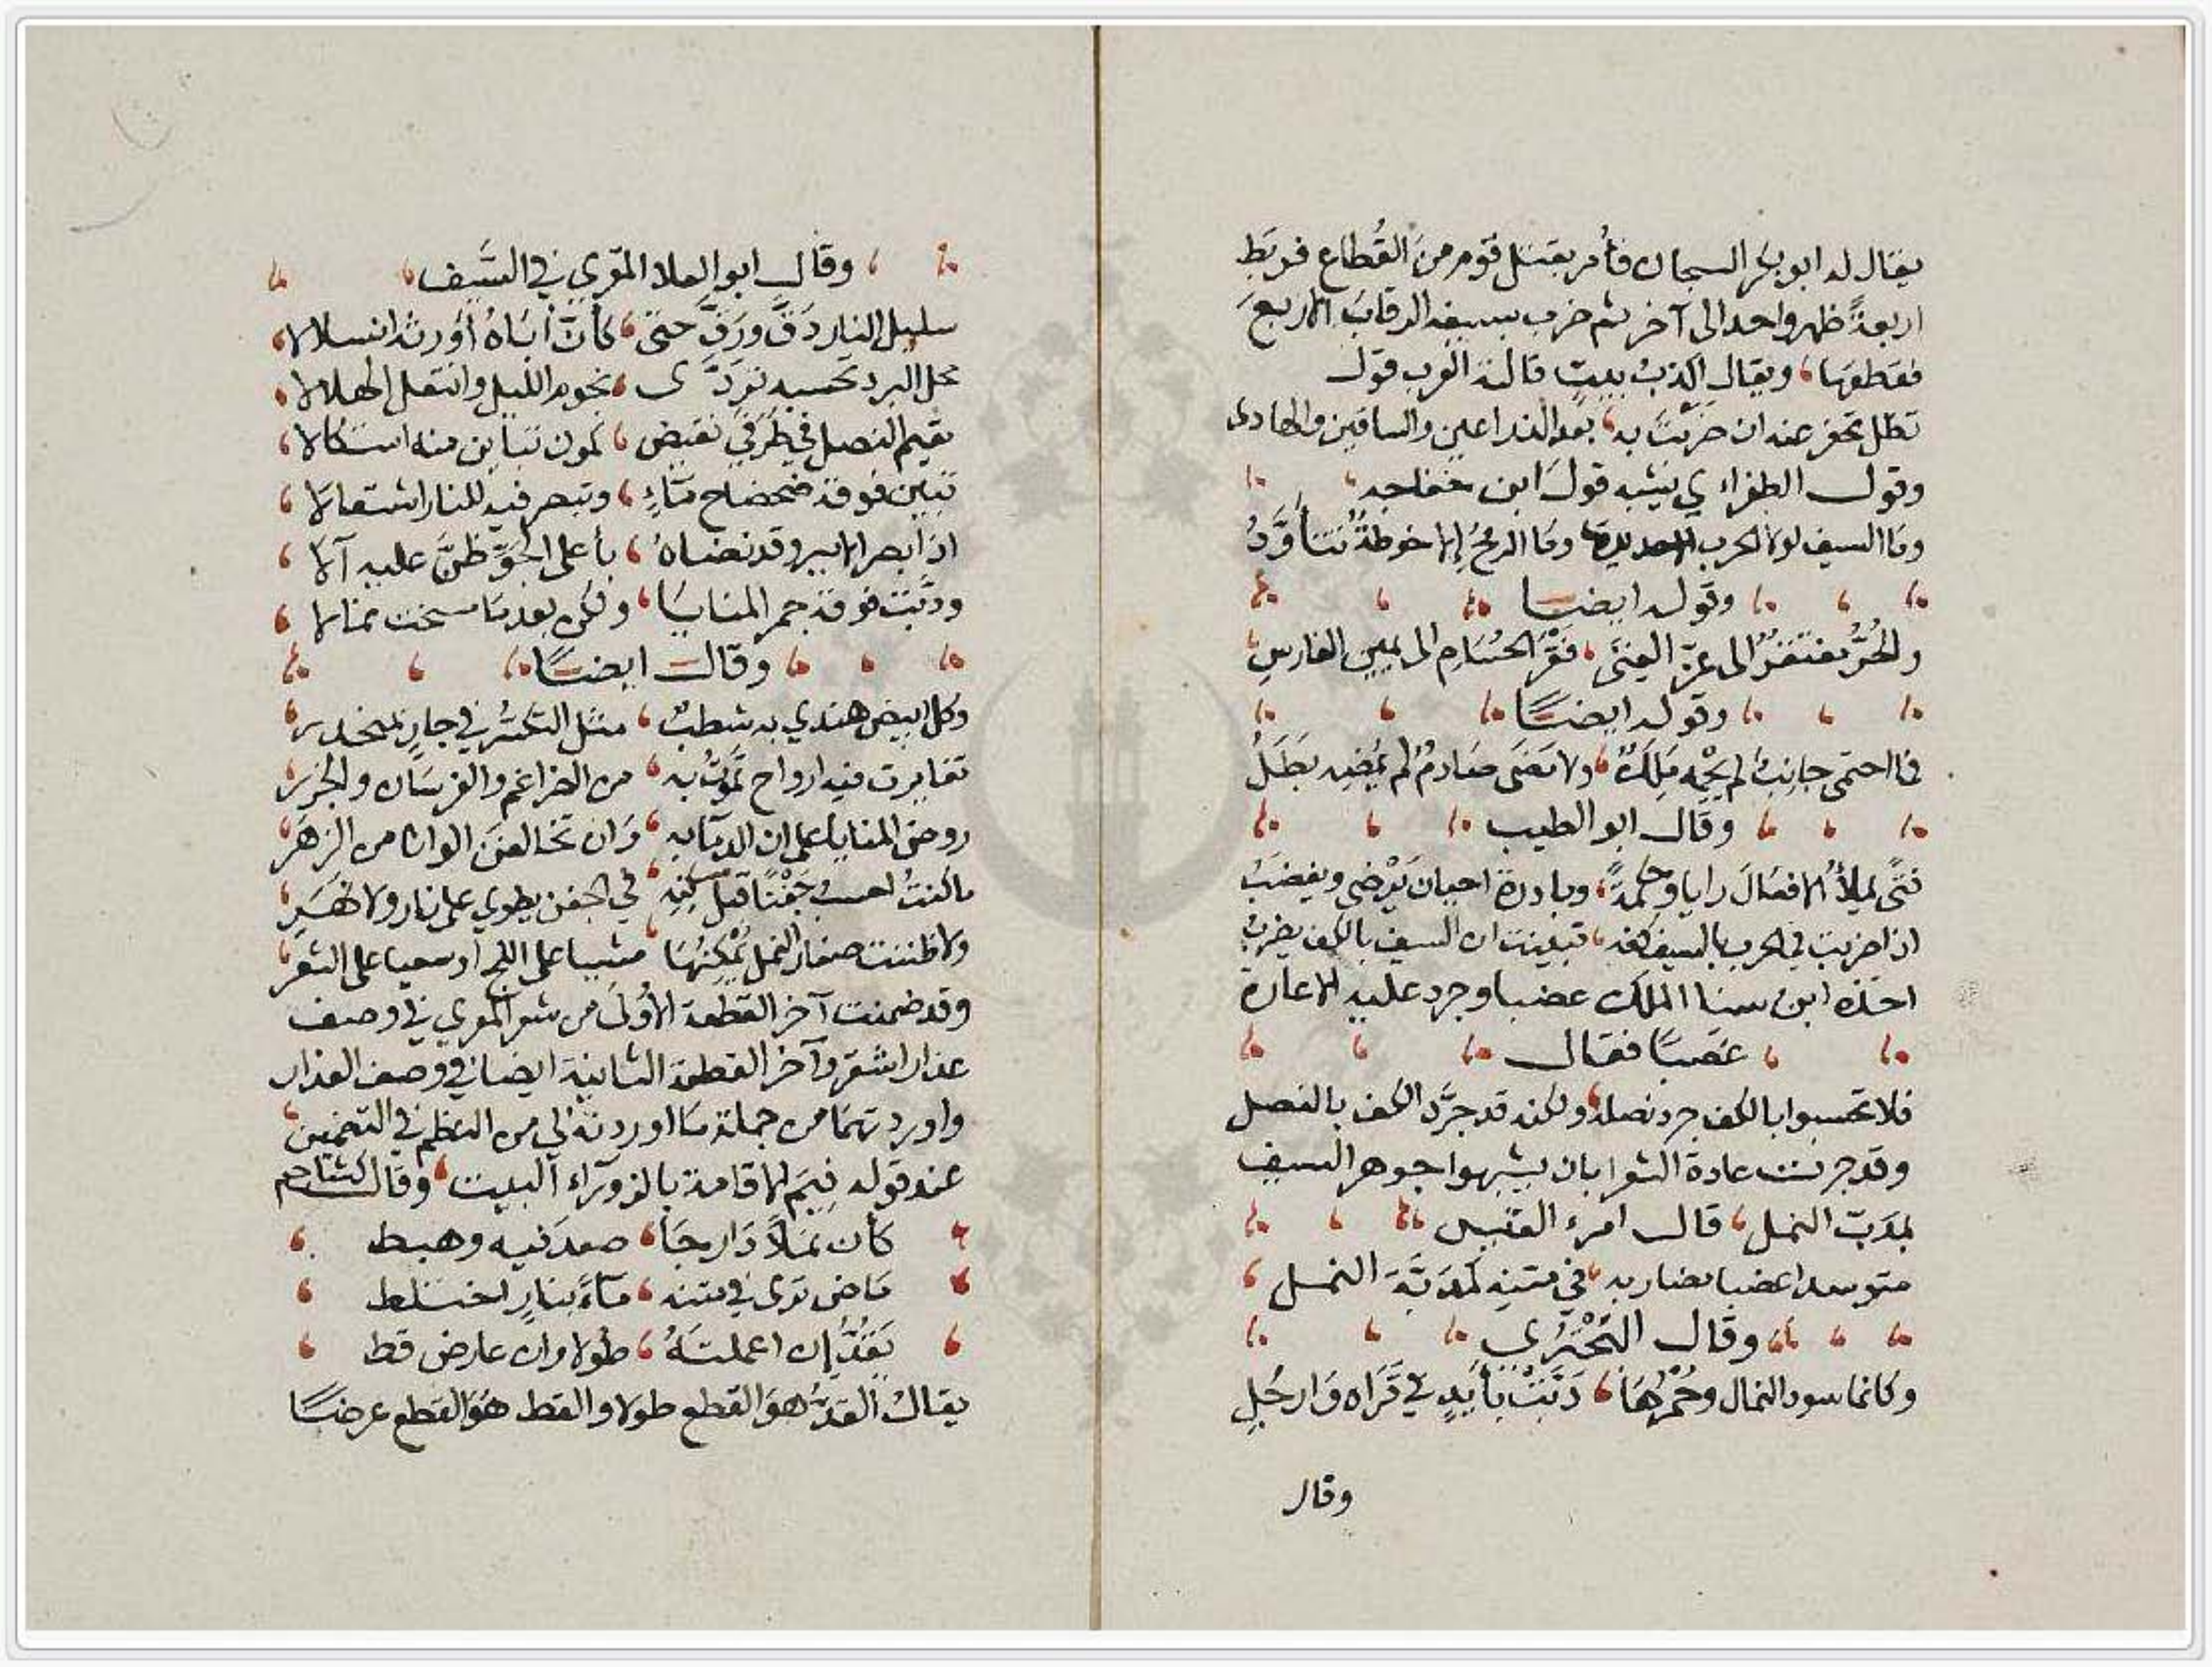 يقال له ابو بكر السجان فأمر بقتل قوم من القُطاع فربط
اربعةً ظهر واحد الى آخر ثم ضرب بسيفه الرقاب الاربع
فقطعها، ويقال اكذب بيت قالته العرب قول
تظل تحفر عنه ان ضربت به، بعد الذراعين والساقين والهادى
وقول الطغراءي يشبه قول ابن خفاجه
وما السيف لولا الحرب وما الرمح إلا خوطة تتأوَّدُ
وقوله ايضا
والحُرُّ يفتقر الى عزّ الغِنَى، فَقْرَ الحُسَام الى يمين الفارسِ
وقوله ايضًا
فما احتمى جانبٌ لم يحْمِه مَلِكٌ، ولا مَضَى صَارمٌ لم يُمْضِه بَطَلُ
وقال ابو الطيب
فتًى يملأُ الافعالَ رايا وحكمةً، وبادرة احيان يَرْضى ويغضبُ
اذا ضربت في الحرب بالسيف كفه، تبينت ان السيف بالكف يضربُ
اخذه ابن سنا الملك غضبا وجرد عليه الاغارة
عَضبًا فقال
فلا تحسبوا بالكف جرد نصله، ولكنه قد جرَّد الكف بالنصل
وقد جرت عادة الشعرا بان يشبهوا جوهر السيف
بمَدَبّ النمل، قال امرء القيس
متوسدا عضبا مضاربه، في متنِه كمَدَبَّةِ النمل
وقال البُحْتُرُي
وكانما سود النمال وحُمْرُهَا، دَبَّتْ بأَيْدٍ في قَرَاه وَارجُلِ
وقال
وقال ابو العلا المعري في السَّيف
سليل النار دَقَّ ورَقَّ حتى، كأنّ أبَاهُ أَورثه السلالا
محلى البرد تحسبه تردَّى، نجوم الليل وانتعل الهلالا
يقيم النصل في طرفَيْ نقيض، يكون تباين منه اشتكالا
تبين فوقه ضحضاح مَاءٍ، وتبصر فيه للنار اشتعالا
اذا بصر الامير وقد نضاهُ، بأعلى الجَوِّ ظنَّ عليه آلا
ودبَّت فوقه حمر المنايَا، ولكن بعد مَا مسخت نمالا
وقال ايضًا
وكل ابيض هندي به شطبٌ، مثل التكسُّرِ في جارٍ بمنحدر
تغايرت فيه ارواح تَمُوتُ به، من الضراغم والفرسَان والجزر
روض المنايا على ان الدمَا به، وَان تخالفنَ الوانا من الزهَر
ما كنتُ احسب جَفْنًا قبل مسكنِه، في الجفن يطوي على نار ولا نهَرِ
ولا ظننت صغار النمل يُمْكِنُهَا، مشيا على اللج او سعيا على السُّعر
وقد ضمنت آخر القطعة الأُولَى من شعر المعري في وصف
عذار اشقر وآخر القطعة الثانية ايضا في وصف العذار
واوردتهمَا من جملة مَا اوردته لي من النظم في التضمين
عند قوله فِيمَ الاقامة بالزورَآء البيت، وقال كشاجم
كأن نملاً دَارجَا، صعد فيه وهبط
مَاض ترى في متنه، مآءً بنارٍ اختلط
يَقُدُّ إن اعملتَهُ، طُولا وان عارض قط
يقال القدّ هوَ القطع طولا والقط هوَ القطع عرضًا